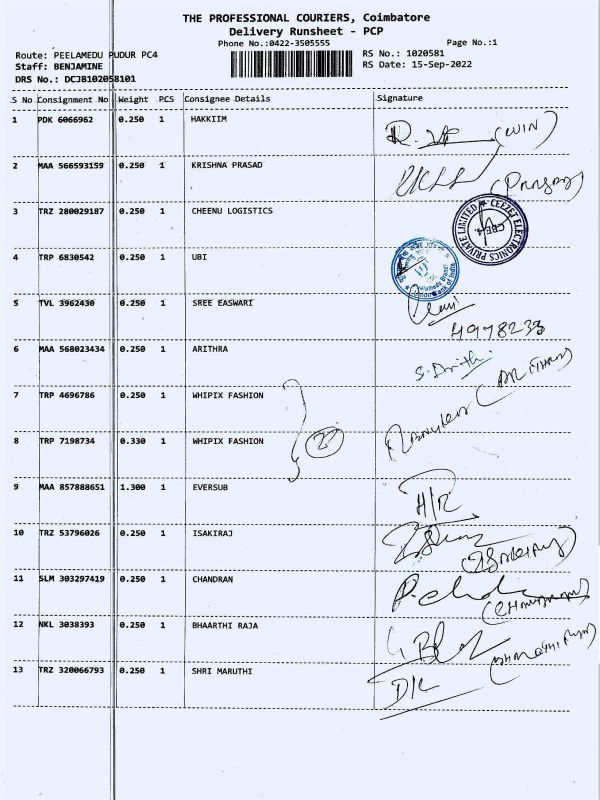 THE PROFESSIONAL COURIERS, Coimbatore
Delivery Runsheet - PCP
Phone No.:0422-3505555
Page No.:1
Route: PEELAMEDU PUDUR PC4
RS No.: 1020581
Staff: BENJAMINE
RS Date: 15-Sep-2022
DRS No.: DCJB102058101
S No Consignment No Weight PCS Consignee Details Signature
1 PDK 6066962 0.250 1 HAKKIIM (WIN)
2 MAA 566593159 0.250 1 KRISHNA PRASAD
3 TRZ 280029187 0.250 1 CHEENU LOGISTICS
CEEZET ELECTRONICS PRIVATE LIMITED
CBE-4
4 TRP 6830542 0.250 1 UBI
Peelamedu Branch
Union Bank of India
5 TVL 3962430 0.250 1 SREE EASWARI
4978233
6 MAA 568023434 0.250 1 ARITHRA
7 TRP 4696786 0.250 1 WHIPIX FASHION
8 TRP 7198734 0.330 1 WHIPIX FASHION
9 MAA 857888651 1.300 1 EVERSUB H/R
10 TRZ 53796026 0.250 1 ISAKIRAJ
11 SLM 303297419 0.250 1 CHANDRAN
12 NKL 3038393 0.250 1 BHAARTHI RAJA
13 TRZ 320066793 0.250 1 SHRI MARUTHI D/R